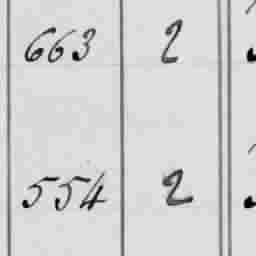 663 2
554 2